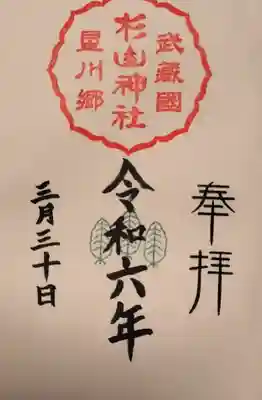 武蔵國
杉山神社
星川郷
奉拝
令和六年
三月三十日